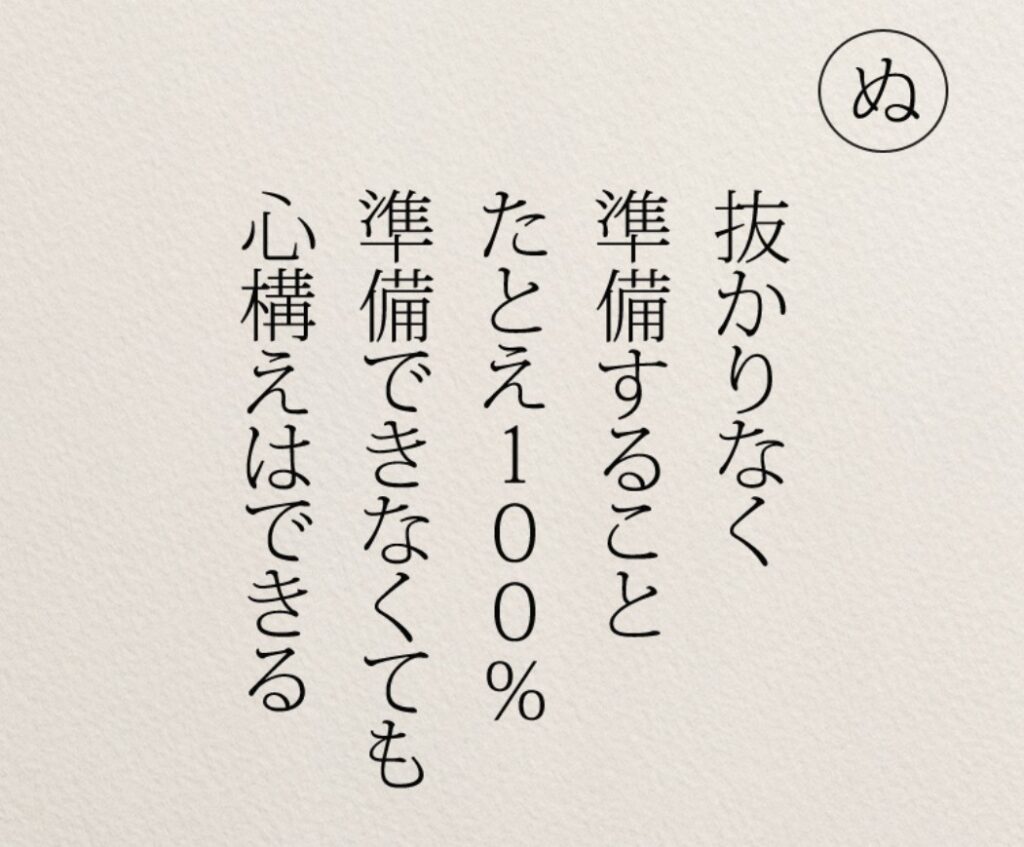 ぬ
抜かりなく
準備すること
たとえ100%
準備できなくても
心構えはできる